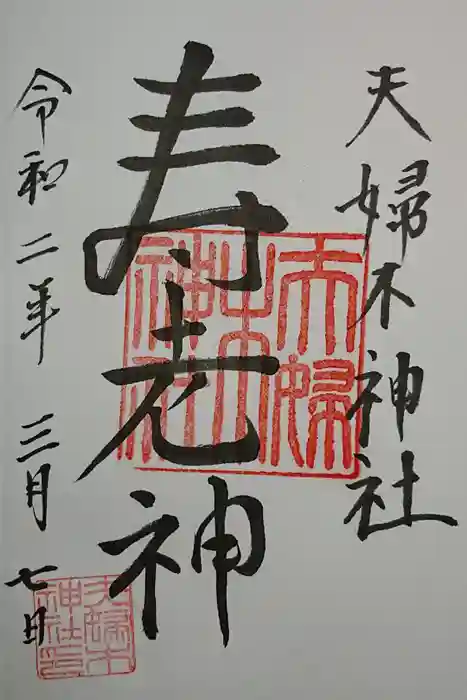 夫婦木神社
寿老神
令和二年三月七日
夫婦木神社
夫婦木神社印